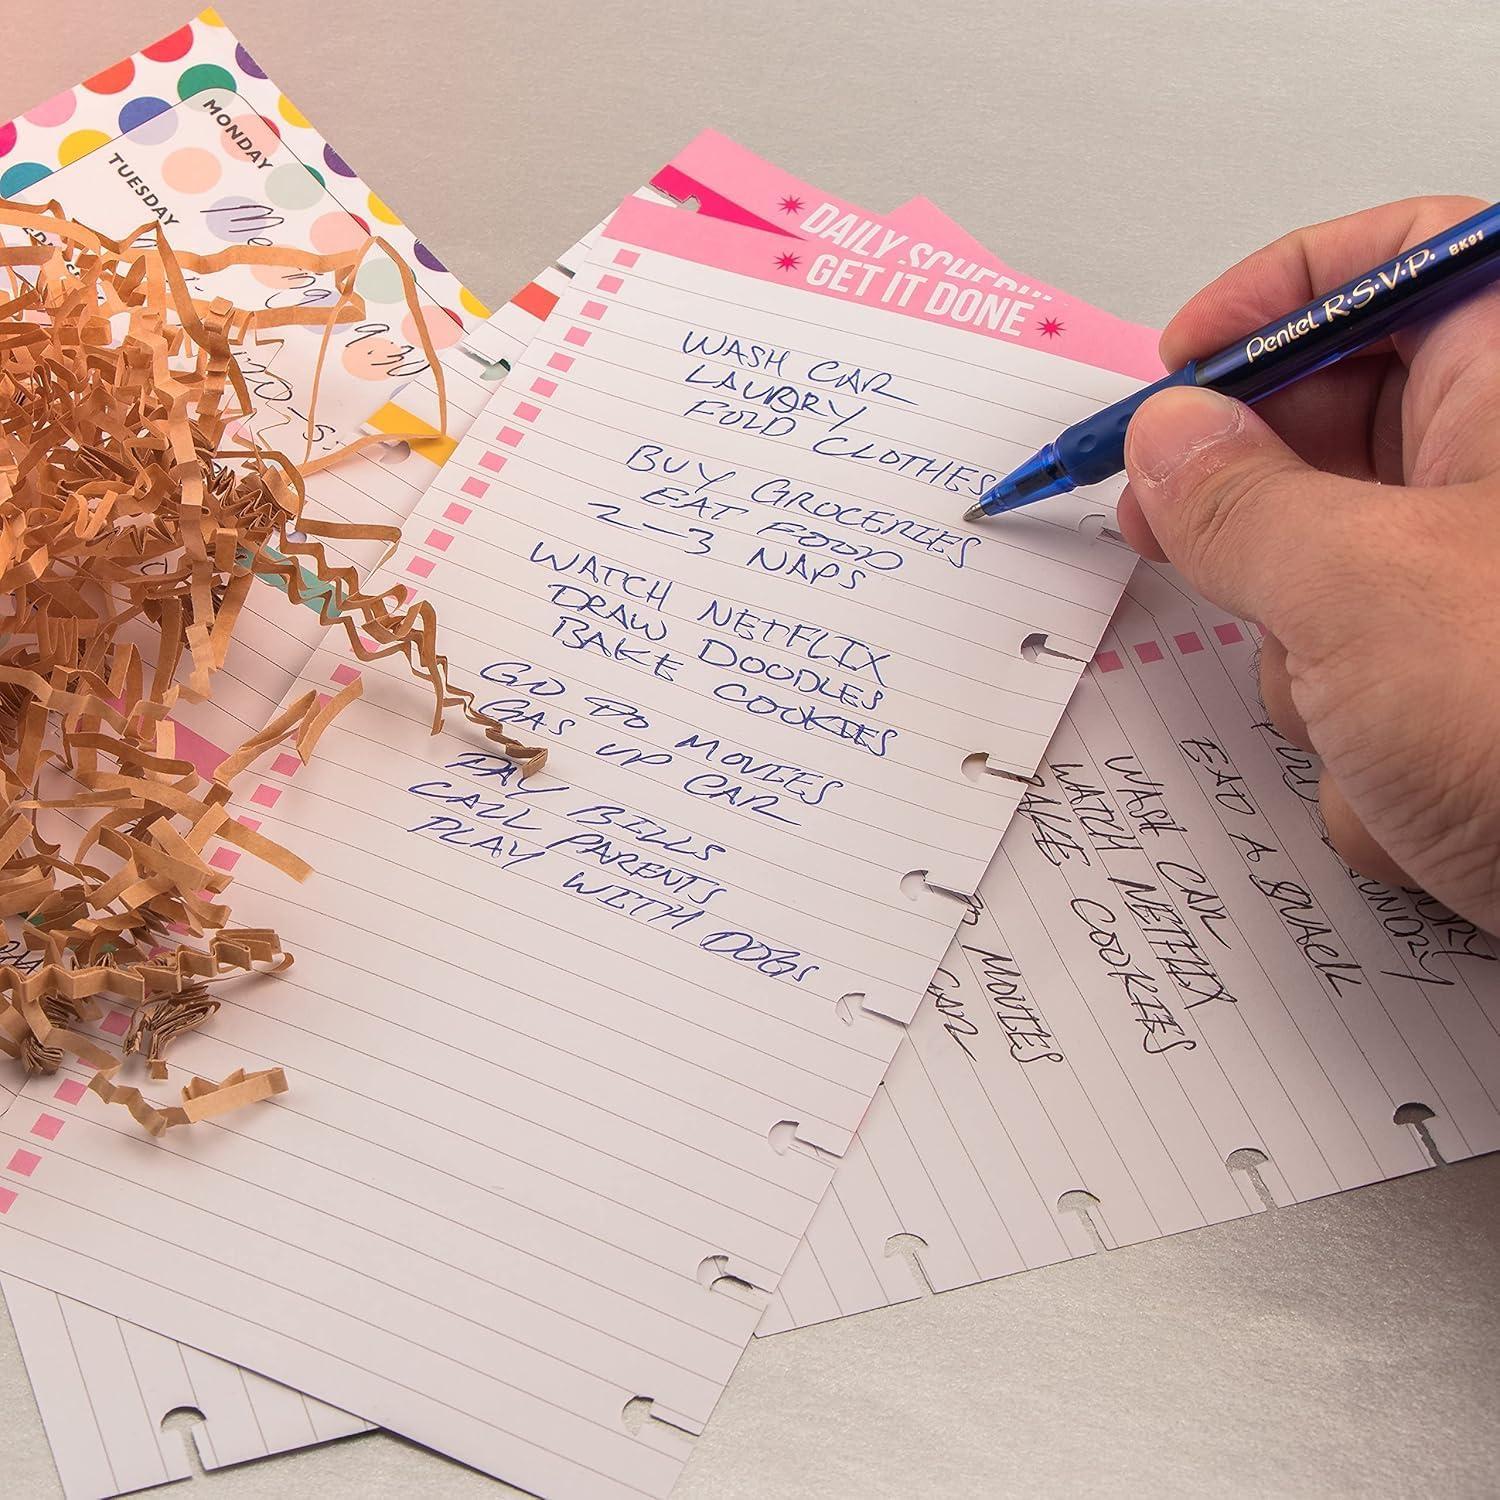 MONDAY
TUESDAY
DAILY SCHEDU
GET IT DONE
WASH CAR
LAUDRY
FOLD CLOTHES
BUY GROCERIES
EAT FOOD
2-3 NAPS
WATCH NETFLIX
DRAW DOODLES
BAKE COOKIES
GO TO MOVIES
GAS UP CAR
PAY BILLS
CALL PARENTS
PLAY WITH DOGS
Pentel R·S·V·P· BK91
EAT A SNACK
WASH CAR
WATCH NETFLIX
BAKE COOKIES
MOVIES
CAR